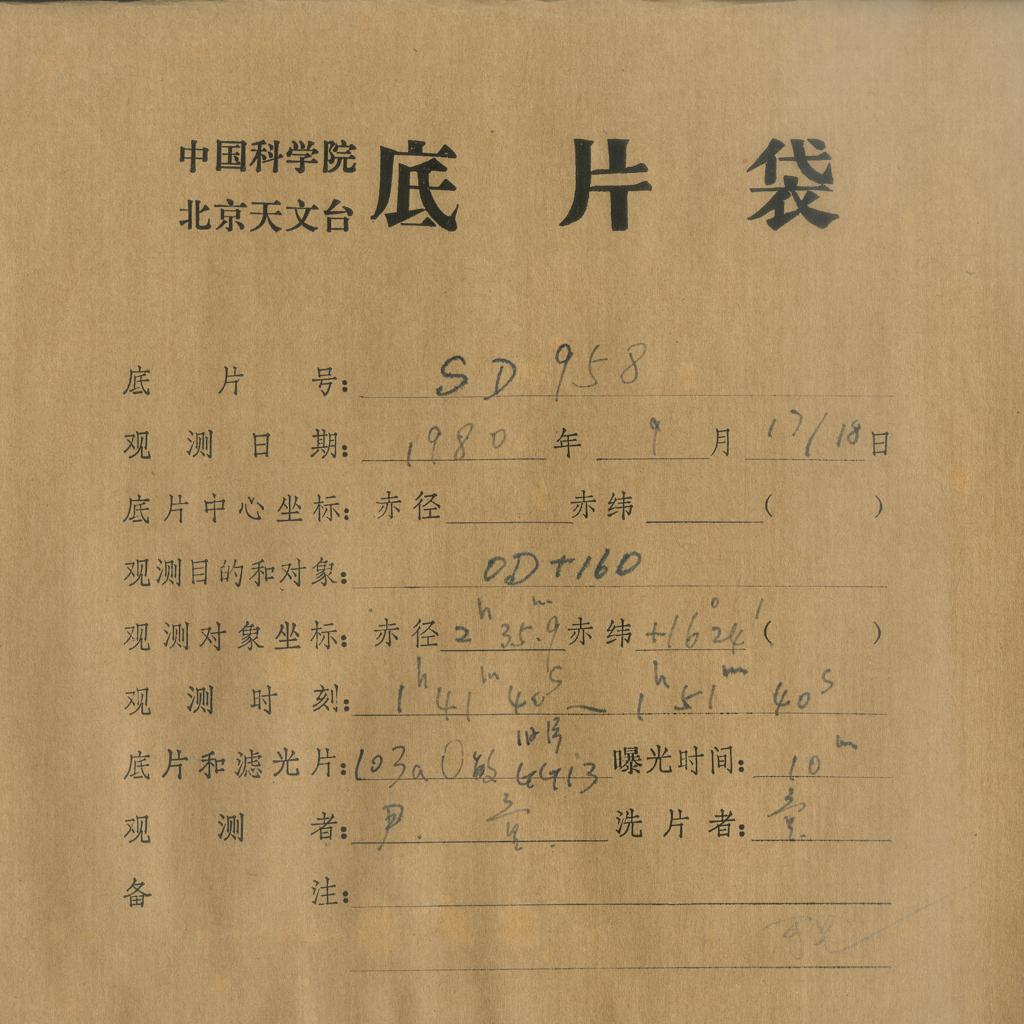 中国科学院
北京天文台
底片袋
底片号: SD 958
观测日期: 1980年 9月 17/18日
底片中心坐标: 赤径 赤纬 ( )
观测目的和对象: OD+160
观测对象坐标: 赤径 2h 35m.9 赤纬 +16°24′ ( )
观测时刻: 1h 41m 40s — 1h 51m 40s
旧号
底片和滤光片: 103aO敏 4413 曝光时间: 10m
观测者: 尹. 洗片者:
备注: